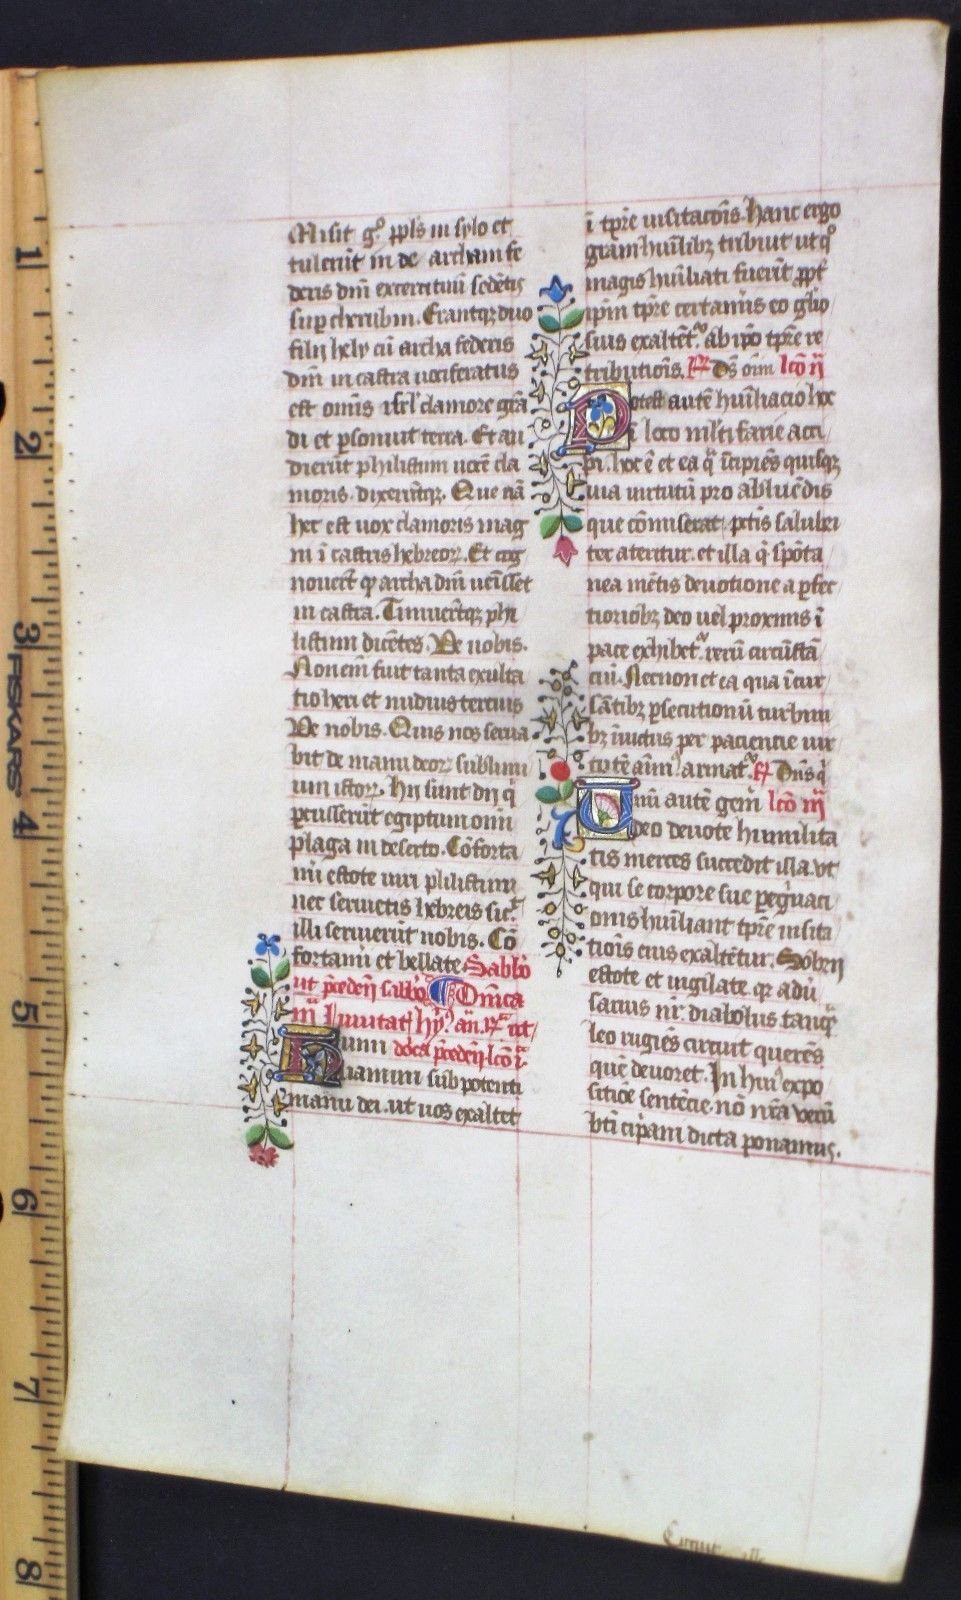 Misit gͦ. ppl̄s in sylo et
tulerūt in de archam fe
deris dm̄ exercituū sedētis
sup cherubin. Erantqꝫ duo
filij hely cū archa federis
dm̄ in castra uociferatus
est om̄is isrl̄ clamore grā
di et ꝑsonuit terra. Et au
dierūt philistiim uocē cla
moris. dixerūtqꝫ. Que nā
hec est uox clamoris mag
ni ī castris hebreoꝝ. Et cog
nouerūt ꝙ archa dm̄ uēisset
in castra. Timuerūtqꝫ phi
listiim dicētes. Ve nobis.
Non em̄ fuit tanta exulta
tio heri et nudius tercius
Ve nobis. Quis nos serua
bit de manu deoꝝ sublimi
um istoꝝ. Hij sunt dij q̄
ꝑcusserūt egiptum om̄i
plaga in deserto. Cōforta
mī estote uiri philistiim
nec seruietis hebreis sic
illi seruierūt nobis. Cō
fortamī et bellate Sabbo
ut p̄cedeñ sabbo Dnīca
iij Inuitat̄ hȳ. an̄. ut
docā p̄cedeñ. lcō i
Humiliamini sub potenti
manu dei. ut uos exaltet
ī tp̄re uisitacōis. Hanc ergo
grām huīlibꝫ tribuit ut qͦ
magis huīliati fuerīt ꝓpt̄
ip̄m tp̄re certamīs eo glīo
sius exaltēt ab ip̄o tp̄re re
tributiōis. Ds̄ oīm lcō ij
Potest autē huīliacio hoc
ī loco mlti farie acci
pi. hoc ē et ea q̄ īcipiēs quisqꝫ
uia uirtutū pro abluēdis
que cōmiserat pctīs salubri
ter ateritur. et illa q̄ spōta
nea mētis deuotione a ꝑfec
tioriōbꝫ deo uel proximis ī
pace exhibet reru circūstā
ciū. Necnon et ea qua īcur
sātibꝫ ꝑsecutionū turbini
bꝫ īuictus per paciencie uir
tutē aīm armat Dn̄s q̄
ini autē gem̄ lcō iij
Uideo deuote humilita
tis merces succedit illa. ut
qui se corpore sue pegͥnaci
onis huīliant tp̄re uisita
tiōis eius exaltētur. Sobrij
estote et uigilate. qꝫ adū
sarius nr̄ diabolus tanqͣ
leo rugiēs circuit querēs
quē deuoret. In huiͥ expo
sitiōe sentēcie. nō nrā uerū
bt̄i cip̄ani dicta ponamus.
Circuit